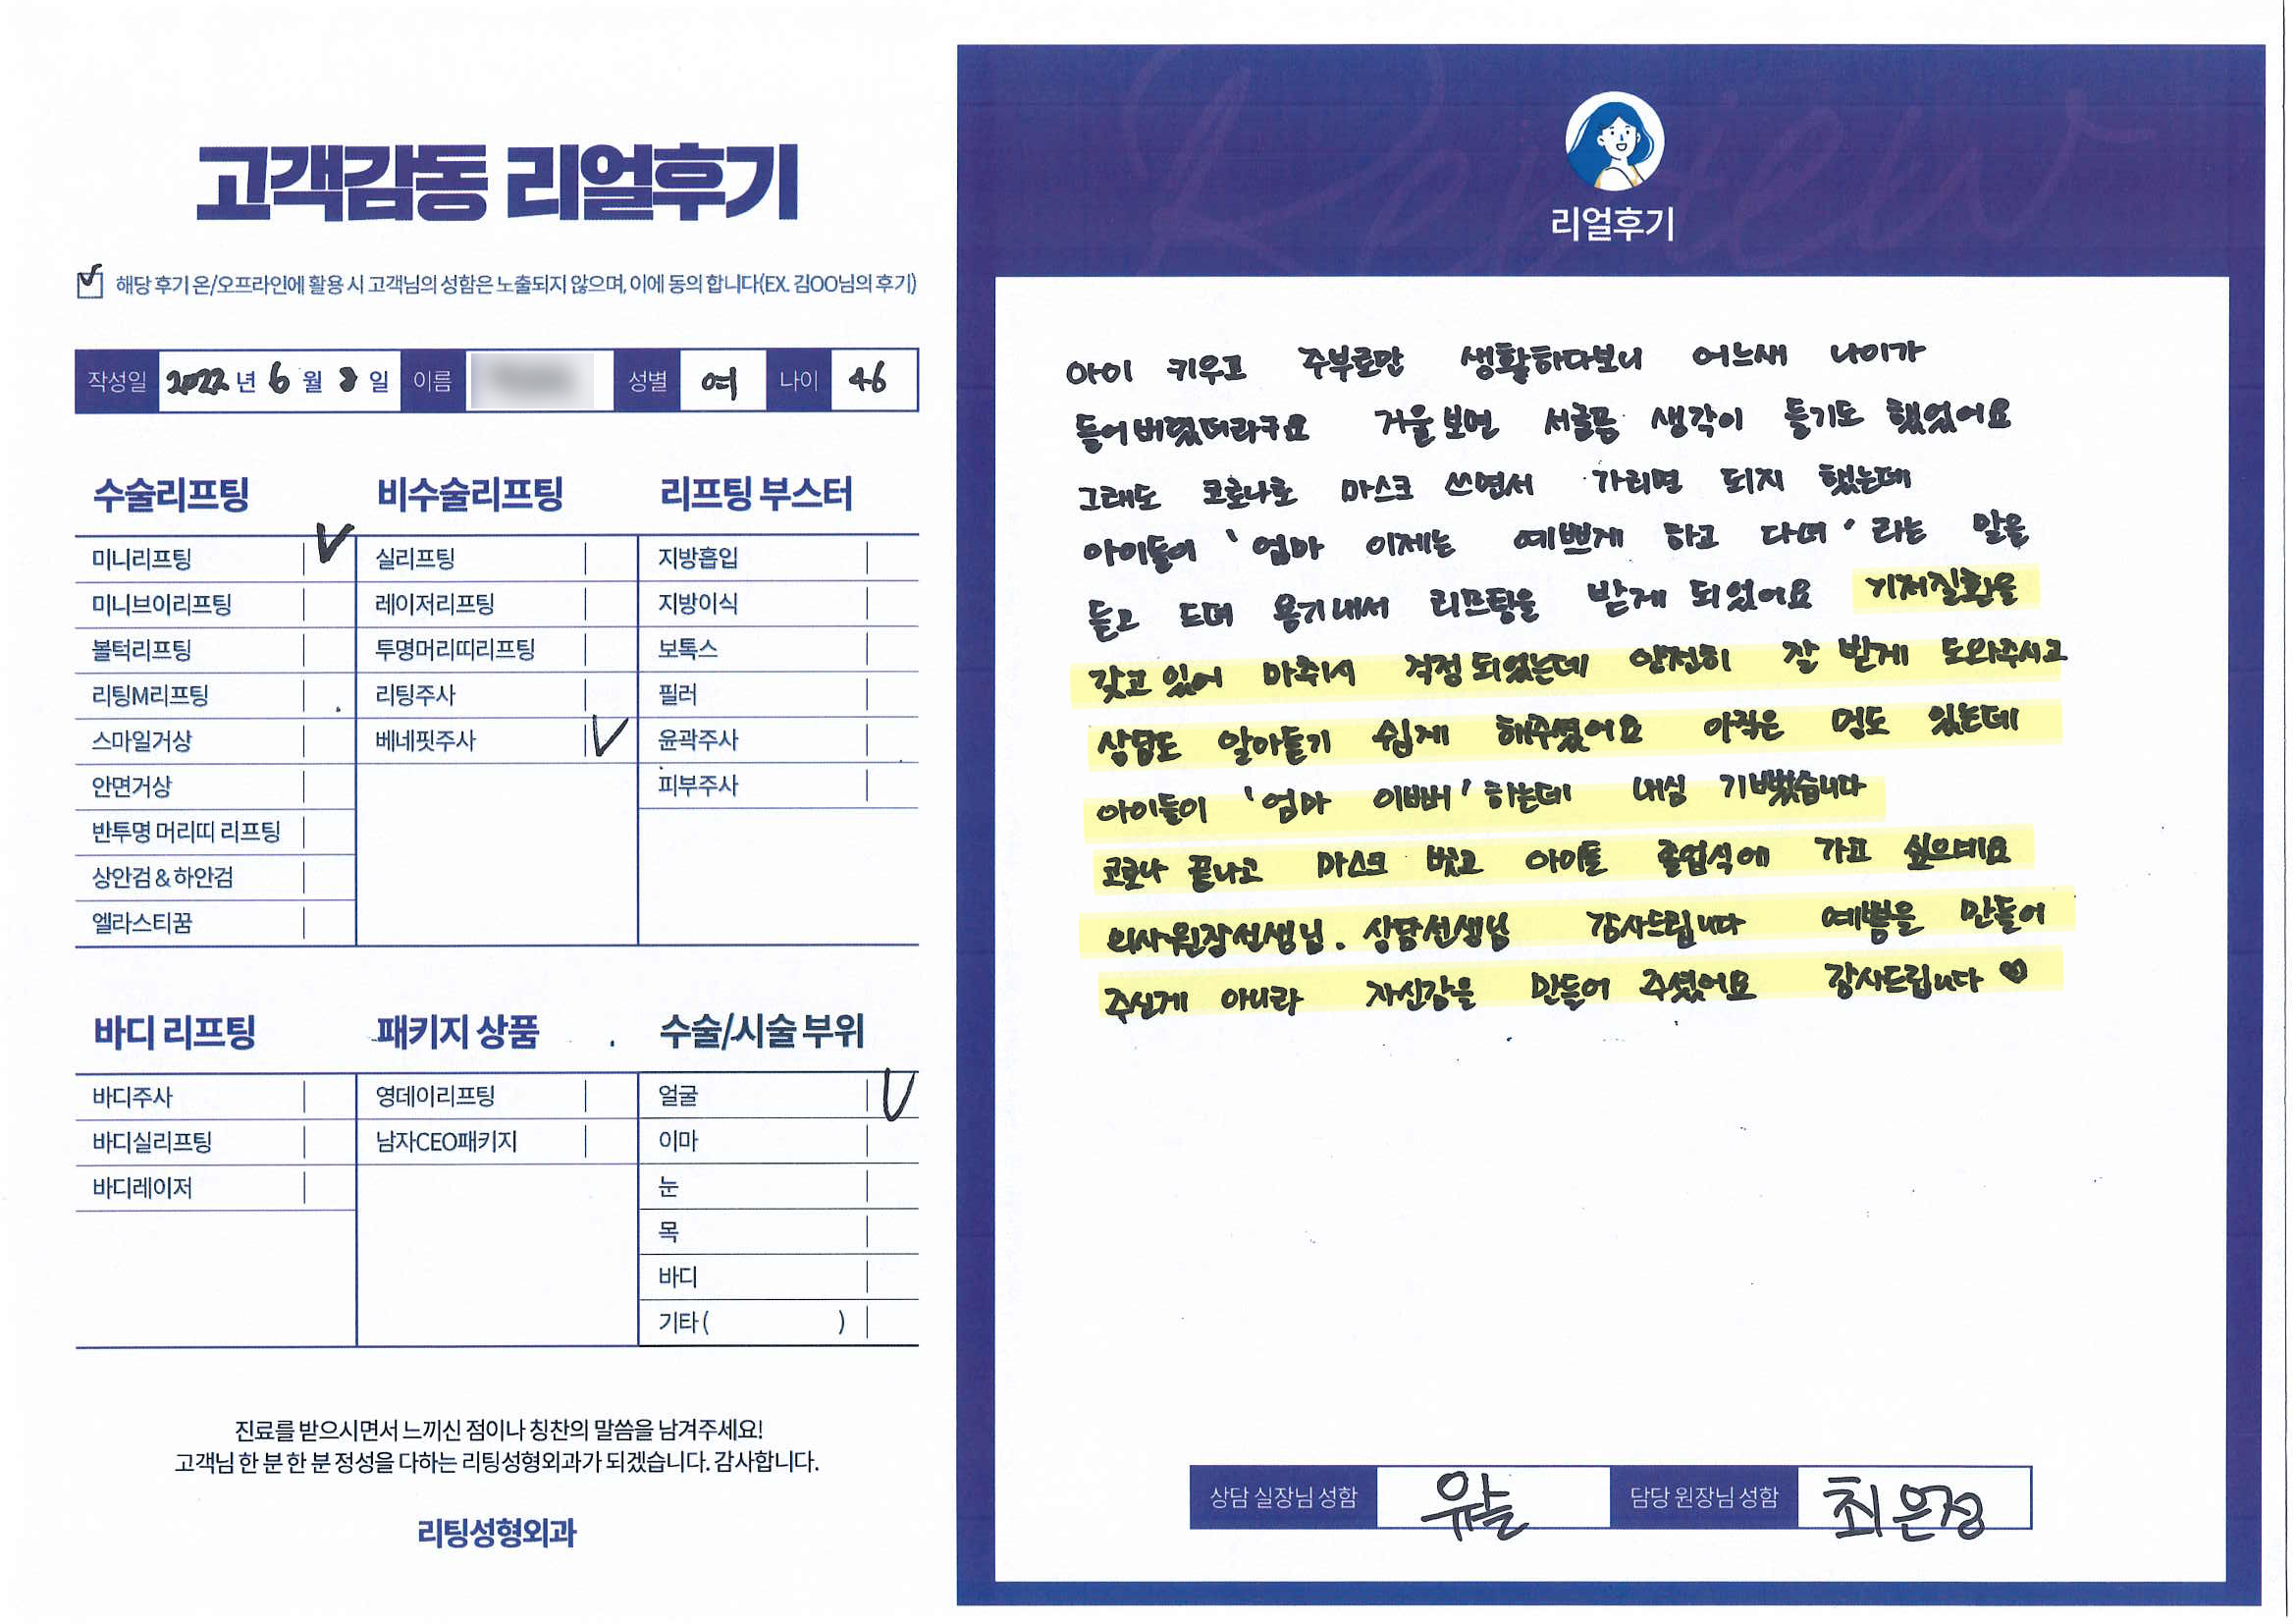 고객감동 리얼후기
해당 후기 온/오프라인에 활용 시 고객님의 성함은 노출되지 않으며, 이에 동의 합니다(EX. 김OO님의 후기)
작성일 2022 년 6 월 8 일 이름 성별 여 나이 46
수술리프팅
미니리프팅
미니브이리프팅
볼턱리프팅
리팅M리프팅
스마일거상
안면거상
반투명 머리띠 리프팅
상안검 & 하안검
엘라스티꿈
비수술리프팅
실리프팅
레이저리프팅
투명머리띠리프팅
리팅주사
베네핏주사
리프팅 부스터
지방흡입
지방이식
보톡스
필러
윤곽주사
피부주사
바디 리프팅
바디주사
바디실리프팅
바디레이저
패키지 상품
영데이리프팅
남자CEO패키지
수술/시술 부위
얼굴
이마
눈
목
바디
기타 ( )
진료를 받으시면서 느끼신 점이나 칭찬의 말씀을 남겨주세요!
고객님 한 분 한 분 정성을 다하는 리팅성형외과가 되겠습니다. 감사합니다.
리팅성형외과
Review
리얼후기
아이 키우고 주부로만 생활하다보니 어느새 나이가
들어버렸더라구요 거울보면 서글픔 생각이 들기도 했었어요
그래도 코로나로 마스크 쓰면서 가리면 되지 했는데
아이들이 '엄마 이제는 예쁘게 하고 다녀' 라는 말을
듣고 드뎌 용기내서 리프팅을 받게 되었어요 기저질환을
갖고 있어 마취시 걱정되었는데 안전히 잘 받게 도와주시고
상담도 알아듣기 쉽게 해주셨어요 아직은 멍도 있는데
아이들이 '엄마 이뻐' 하는데 내심 기뻤습니다
코로나 끝나고 마스크 벗고 아이들 졸업식에 가고 싶으네요
의사원장선생님. 상담선생님 감사드립니다 예쁨을 만들어
주신게 아니라 자신감을 만들어 주셨어요 감사드립니다 ♡
상담 실장님 성함 담당 원장님 성함 최은정